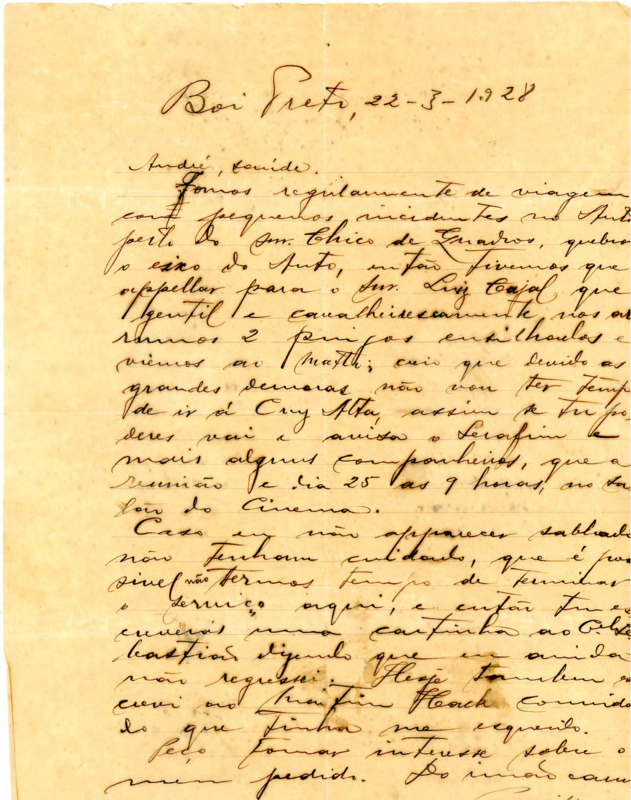 Boi Preto, 22-3-1928
André, saúde.
Fomos regularmente de viagem
com pequenos incidentes no Auto
perto do Snr. Chico de Quadros, quebrou
o eixo do Auto, então tivemos que
appellar para o Snr. Luiz Cajal que
gentil e cavalheirescamente nos ar
ramos 2 pingos ensilhados e
viemos ao Matto; creio que devido as
grandes demoras não vou ter tempo
de ir á Cruz Alta, assim se tu po-
deres vai e avisa o Serafim e
mais alguns companheiros, que a
reunião e dia 25 as 9 horas, no sa
lão do Cinema.
Caso eu não apparecer sabbado
não tenham cuidado, que é pos
sivel não termos tempo de terminar
o serviço aqui, e então tu es
creverás uma cartinha ao
bastião dizendo que eu ainda
não regressei. Hoje tambem es
crevi ao Martim Hack convida
do que tinha me esquecido.
Peço tomar interesse sobre o
meu pedido. Do irmão cam